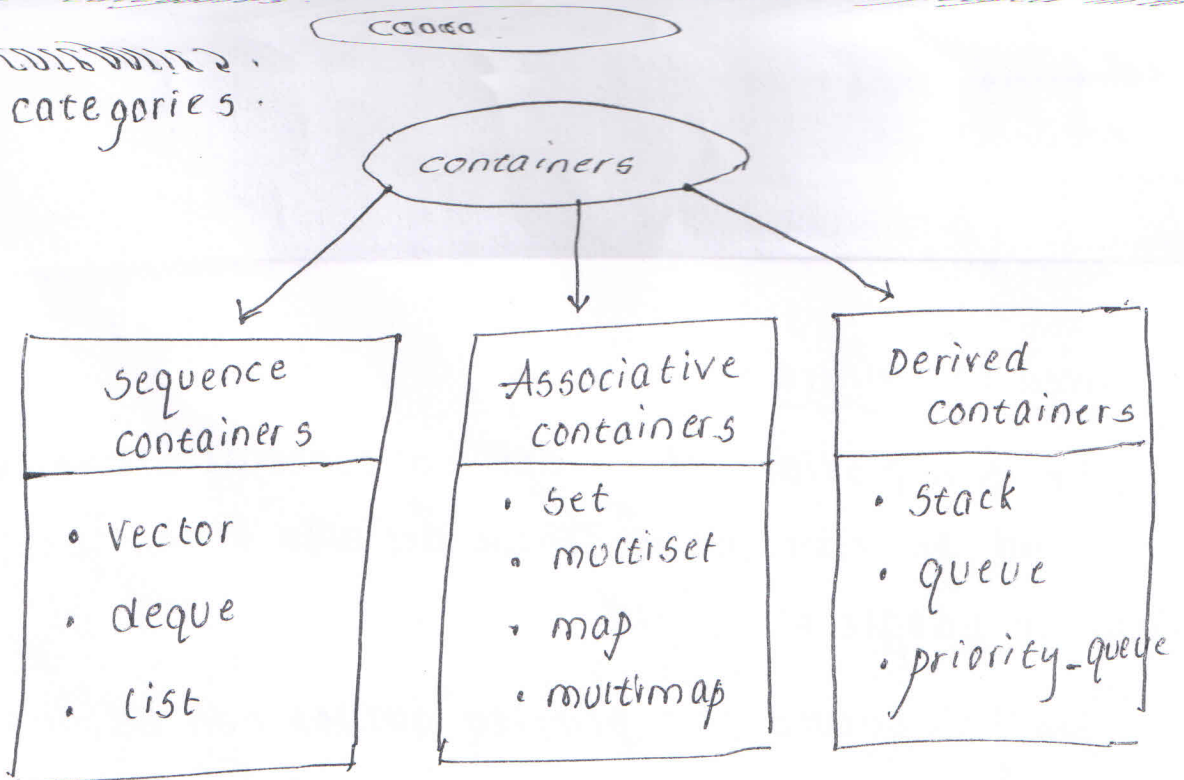 categories.
containers
Sequence
containers
• Vector
• deque
• list
Associative
containers
• Set
• multiset
• map
• multimap
Derived
containers
• Stack
• queue
• priority_queue